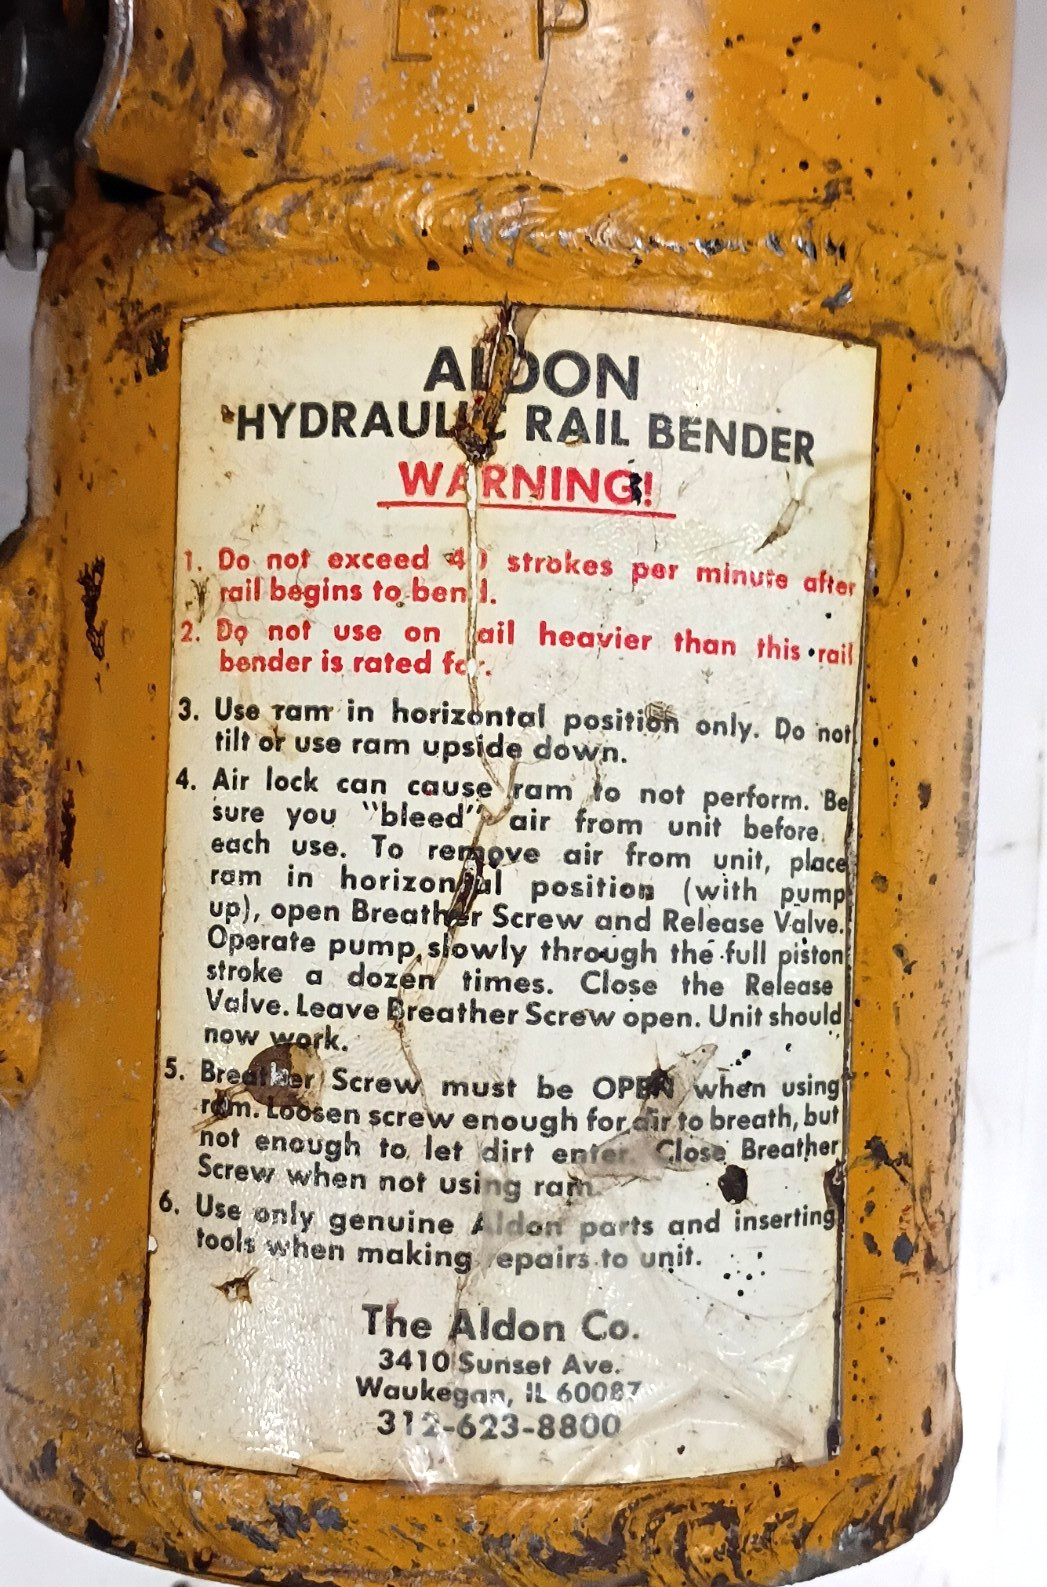 L P
ALDON
HYDRAULIC RAIL BENDER
WARNING!
1. Do not exceed 40 strokes per minute after
rail begins to bend.
2. Do not use on rail heavier than this rail
bender is rated for.
3. Use ram in horizontal position only. Do not
tilt or use ram upside down.
4. Air lock can cause ram to not perform. Be
sure you "bleed" air from unit before
each use. To remove air from unit, place
ram in horizontal position (with pump
up), open Breather Screw and Release Valve.
Operate pump slowly through the full piston
stroke a dozen times. Close the Release
Valve. Leave Breather Screw open. Unit should
now work.
5. Breather Screw must be OPEN when using
ram. Loosen screw enough for air to breath, but
not enough to let dirt enter. Close Breather
Screw when not using ram.
6. Use only genuine Aldon parts and inserting
tools when making repairs to unit.
The Aldon Co.
3410 Sunset Ave.
Waukegan, IL 60087
312-623-8800